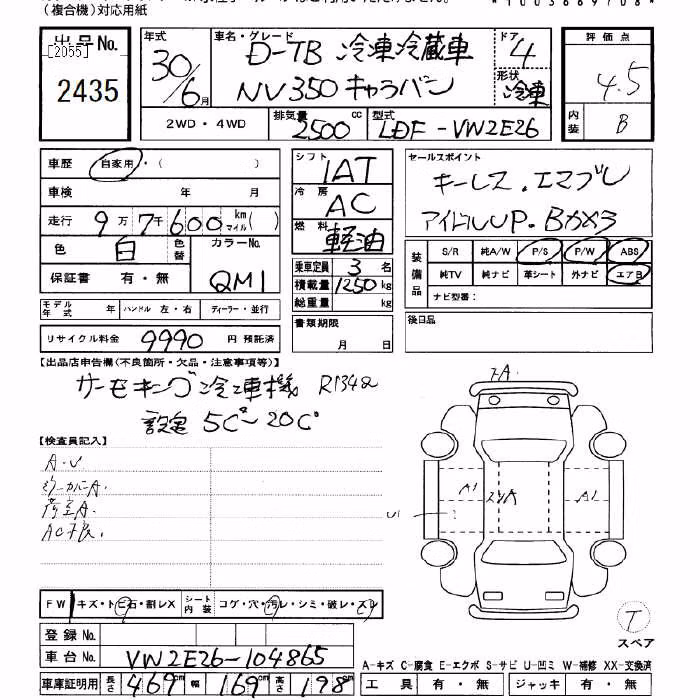 (複合機)対応用紙
出品No.
[2055]
2435
年式
30/6月
車名・グレード
D-TB 冷凍冷蔵車
NV350 キャラバン
ドア
4
形状
冷凍
評価点
4.5
内装
B
2WD・4WD
排気量
2500 cc
型式
LDF-VW2E26
車歴
自家用・( )
車検 年 月
走行 9万7千600 km マイル( )
色 白 色替
カラーNo.
QM1
保証書 有・無
シフト
1AT
冷房
AC
燃料
軽油
乗車定員 3 名
積載量 1250 kg
総重量 kg
セールスポイント
キーレス.エマブレ
アイドルUP.Bカメラ
装備品
S/R 純A/W P/S P/W ABS
純TV 純ナビ 革シート 外ナビ エアB
ナビ型番:
モデル年式 年 ハンドル 左・右 ディーラー・並行
リサイクル料金 9990 円 預託済
書類期限
月 日
後日品
【出品店申告欄(不良箇所・欠品・注意事項等)】
サーモキング冷凍機 R134a
設定 5C°~20C°
【検査員記入】
A.U
荷室A.
AC不良.
A
A1
A1
U1
FW キズ・トビ石・割レX シート内装 コゲ・穴・汚レ・シミ・破レ・スレ
登録No.
車台No. VW2E26-104865
車庫証明用 長さ 469 cm 幅 169 cm 高さ 198 cm
T
スペア
A-キズ C-腐食 E-エクボ S-サビ U-凹ミ W-補修 XX-交換済
工具 有・無 ジャッキ 有・無